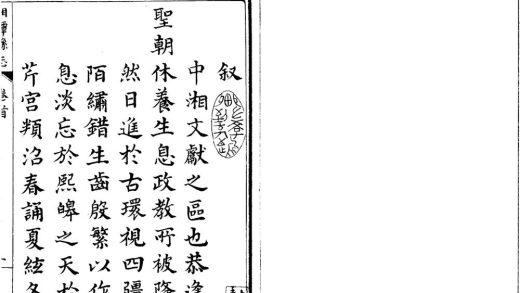 叙
中湘文獻之區也恭逢
聖朝休養生息政教所被隆
然日進於古環視四疆
陌繡錯生齒殷繁以作
息淡忘於熙皞之天於
芹宫類沿春誦夏絃冬
湘潭縣志 卷首